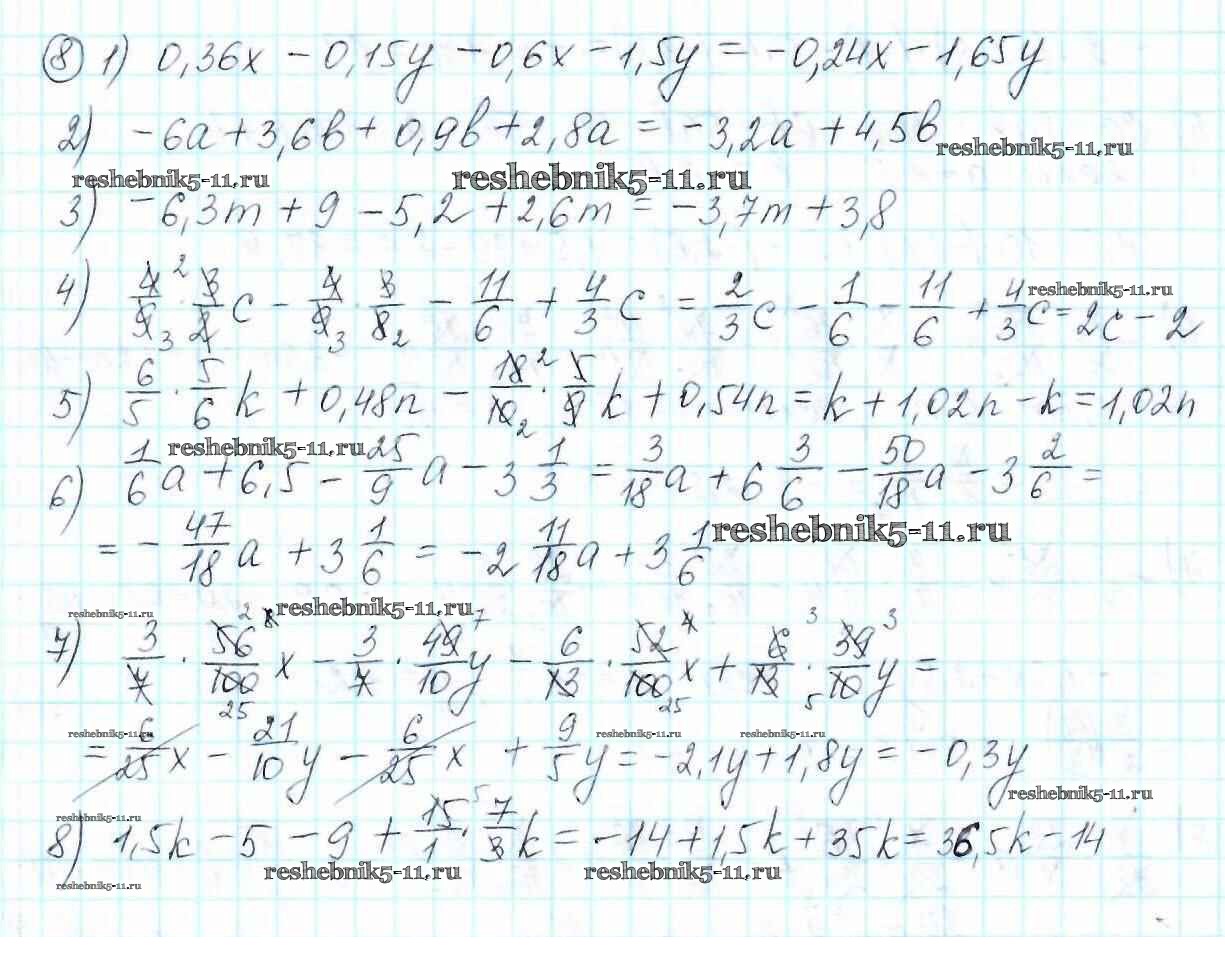 ⑧ 1) 0,36x − 0,15y − 0,6x − 1,5y = −0,24x − 1,65y
2) −6a + 3,6b + 0,9b + 2,8a = −3,2a + 4,5b reshebnik5-11.ru
reshebnik5-11.ru reshebnik5-11.ru
3) −6,3m + 9 − 5,2 + 2,6m = −3,7m + 3,8
4) 4/9 3 2 · 3/2 c − 4/9 3 · 3/8 2 − 11/6 + 4/3 c = 2/3 c − 1/6 − 11/6 + 4/3 c = 2c − 2 reshebnik5-11.ru
5) 6/5 · 5/6 k + 0,48n − 18/10 2 2 · 5/9 k + 0,54n = k + 1,02n − k = 1,02n
reshebnik5-11.ru
6) 1/6 a + 6,5 − 25/9 a − 3 1/3 = 3/18 a + 6 3/6 − 50/18 a − 3 2/6 =
= − 47/18 a + 3 1/6 = −2 11/18 a + 3 1/6 reshebnik5-11.ru
reshebnik5-11.ru reshebnik5-11.ru
7) 3/7 · 56/100 2 8 25 x − 3/7 · 49/10 7 y − 6/13 · 52/100 4 25 x + 6/13 3 · 39/10 3 5 y =
reshebnik5-11.ru reshebnik5-11.ru reshebnik5-11.ru
= 6/25 x − 21/10 y − 6/25 x + 9/5 y = −2,1y + 1,8y = −0,3y
reshebnik5-11.ru
reshebnik5-11.ru
8) 1,5k − 5 − 9 + 15/1 5 · 7/3 k = −14 + 1,5k + 35k = 36,5k − 14
reshebnik5-11.ru reshebnik5-11.ru reshebnik5-11.ru